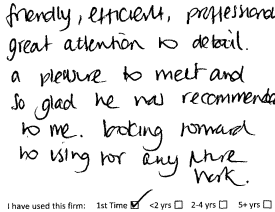 friendly, efficient, professional
great attention to detail.
a pleasure to meet and
so glad he was recommended
to me. looking forward
to using for any more
work.
I have used this firm: 1st Time ☑ <2 yrs ☐ 2-4 yrs ☐ 5+ yrs ☐